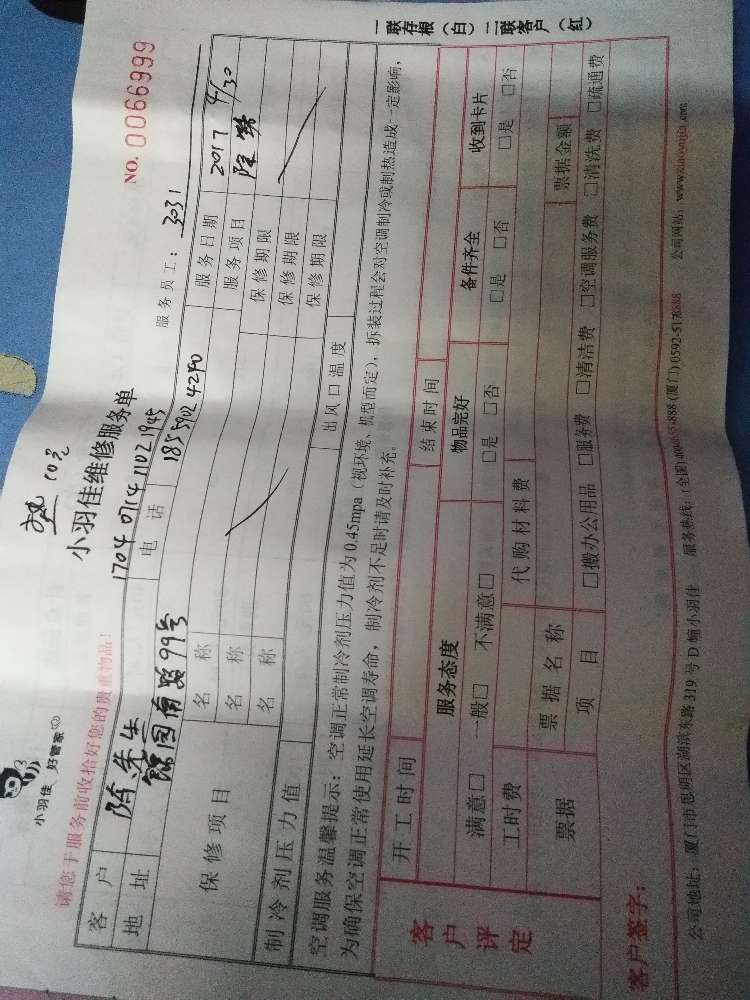 小羽佳 好管家
请您于服务前收拾好您的贵重物品！
NO. 0066999
小羽佳维修服务单
1704 0714 1102 1945
服务员工：3031
客户
电话 185 5902 4290
服务日期 2017 4/30
地址 园南路99号
服务项目
保修项目
名称
保修期限
名称
保修期限
名称
保修期限
制冷剂压力值
出风口温度
空调服务温馨提示：空调正常制冷剂压力值为0.45mpa（视环境、机型而定），拆装过程会对空调制冷或制热造成一定影响，
为确保空调正常使用延长空调寿命，制冷剂不足时请及时补充。
一联存根（白）二联客户（红）
客户评定
开工时间
结束时间
服务态度
物品完好
备件齐全
收到卡片
满意□ 一般□ 不满意□
□是 □否
□是 □否
□是 □否
工时费
代购材料费
票据
票据名称
票据金额
项目
□搬办公用品 □服务费 □清洁费 □空调服务费 □清洗费 □疏通费
客户签字：
公司地址：厦门市思明区湖滨东路319号D幢小羽佳 服务热线：(全国) (厦门)0592-5178888 公司网站：www.xiaoyujia.com